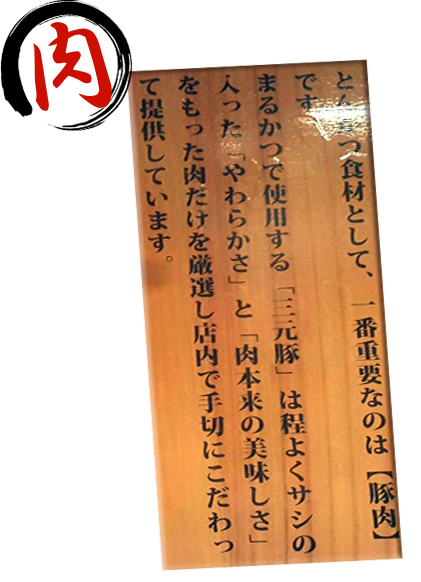 肉
とんかつ食材として、一番重要なのは【豚肉】
です。
まるかつで使用する「三元豚」は程よくサシの
入った「やわらかさ」と「肉本来の美味しさ」
をもった肉だけを厳選し店内で手切にこだわっ
て提供しています。